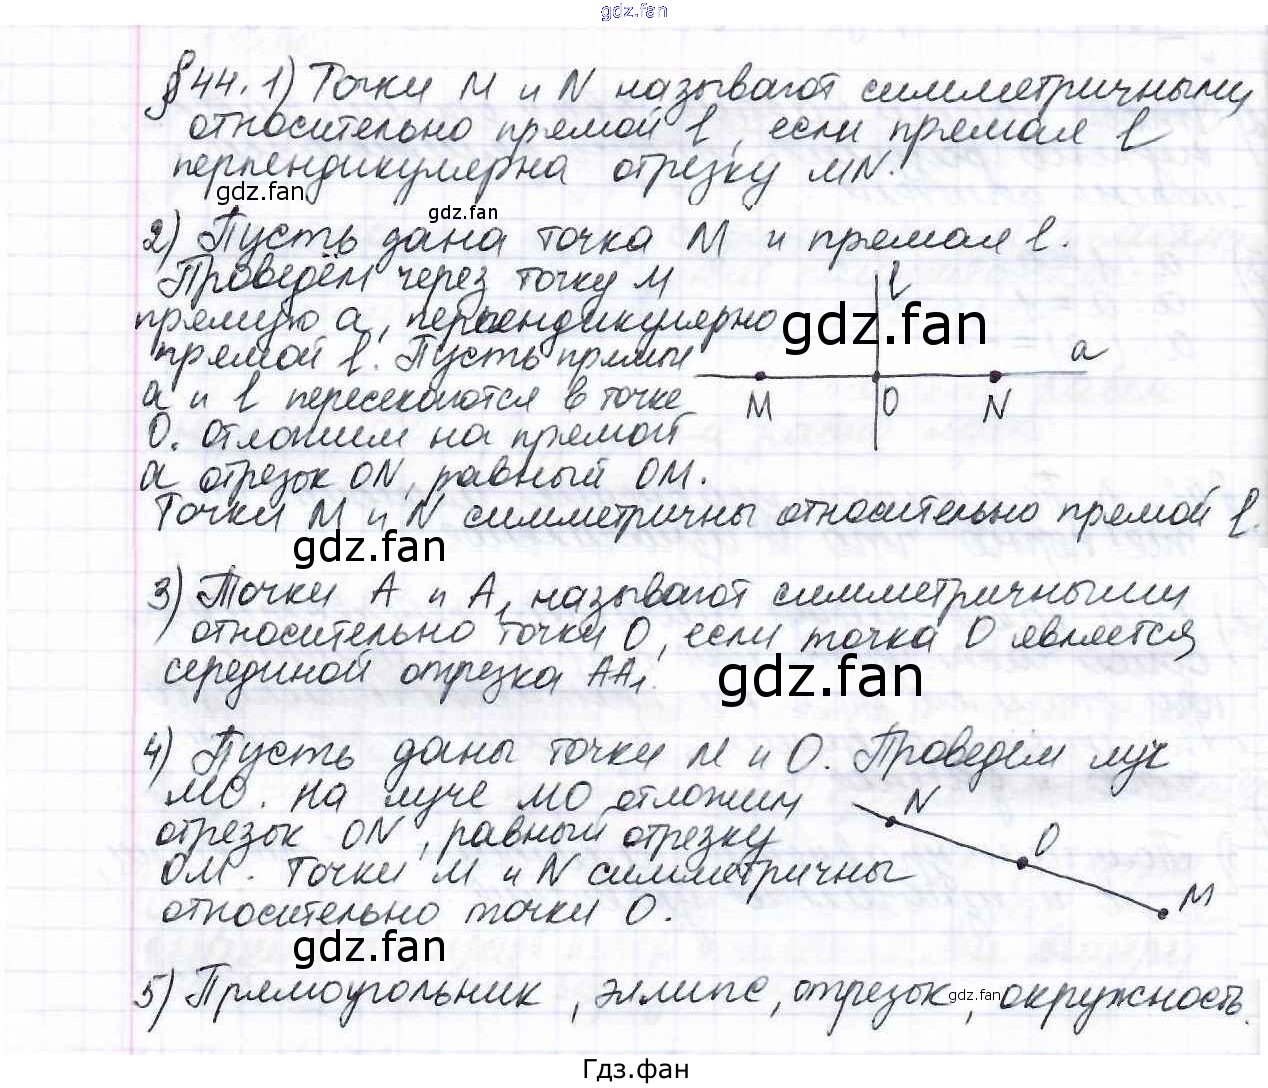 gdz.fan
§44. 1) Точки M и N называют симметричными
относительно прямой l, если прямая l
перпендикулярна отрезку MN.
gdz.fan
gdz.fan
2) Пусть дана точка M и прямая l.
Проведём через точку M
прямую a, перпендикулярно
прямой l. Пусть прямые
a и l пересекаются в точке
O. Отложим на прямой
a отрезок ON, равный OM.
Точки M и N симметричны относительно прямой l.
l
gdz.fan
a
M O N
gdz.fan
3) Точки A и A₁ называют симметричными
относительно точки O, если точка O является
серединой отрезка AA₁.
gdz.fan
4) Пусть даны точки M и O. Проведём луч
MO. На луче MO отложим
отрезок ON, равный отрезку
OM. Точки M и N симметричны
относительно точки O.
N
O
M
gdz.fan
5) Прямоугольник, эллипс, отрезок, окружность.
gdz.fan
Гдз.фан